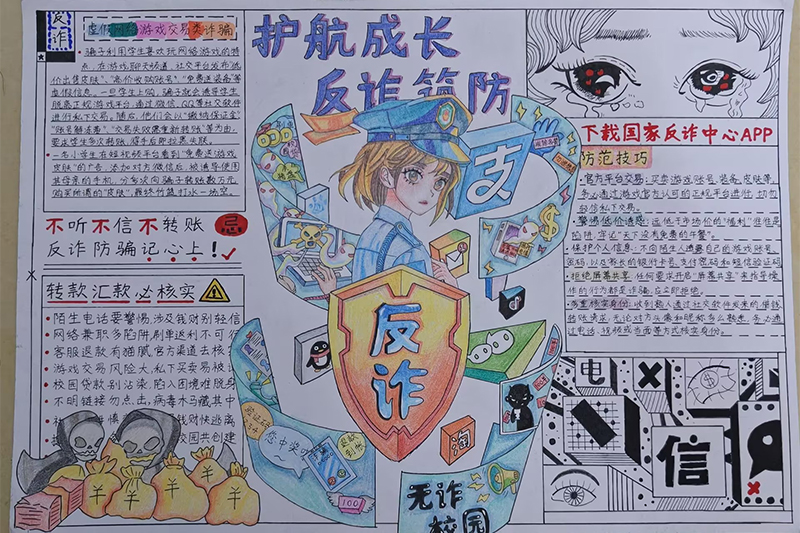 反诈
护航成长
反诈筑防
虚假网络游戏交易类诈骗
• 骗子利用学生喜欢玩网络游戏的特
点,在游戏聊天频道、社交平台发布"低
价出售皮肤"、"高价收购账号"、"免费送装备"等
虚假信息。一旦学生上钩,骗子就会诱导学生
脱离正规游戏平台,通过微信、QQ等社交软件
进行私下交易。随后,他们会以"缴纳保证金"
"账号解冻费"、"交易失败需重新转账"等为由,
要求学生多次转账,得手后即拉黑失联。
• 一名小学生在短视频平台看到"免费送游戏
皮肤"的广告,添加对方微信后,被诱导使用
其母亲的手机,分多次向骗子转账数万元
购买所谓的"皮肤",最终竹篮打水一场空。
不听不信不转账
反诈防骗记心上!
转款汇款必核实
• 陌生电话要警惕,涉及钱财别轻信
• 网络兼职多陷阱,刷单返利不可行
• 客服退款有猫腻,官方渠道去核
• 游戏交易风险大,私下买卖易被
• 校园贷款别沾染,陷入困境难脱身
• 不明链接勿点击,病毒木马藏其中
钱财快逃离
校园共创建
¥
¥
¥
¥
¥
支
反诈
验证码
您中奖
100
淘
无诈
校园
下载国家反诈中心APP
防范技巧
• 官方平台交易:买卖游戏账号、装备、皮肤等,
务必通过游戏官方认可的正规平台进行,切勿
轻信私下交易。
• 警惕低价诱惑:远低于市场价的"福利"往往是
陷阱,牢记"天下没有免费的午餐"。
• 保护个人信息:不向陌生人透露自己的游戏账号、
密码,以及家长的银行卡号、支付密码和短信验证码
• 拒绝屏幕共享:任何要求开启"屏幕共享"来指导操
作的行为都是诈骗,应立即拒绝。
• 多重核实身份:收到熟人通过社交软件发来的借钱、
转账请求,无论对方头像和昵称多么熟悉,务必通
过电话、视频或当面等方式核实身份。
电
信